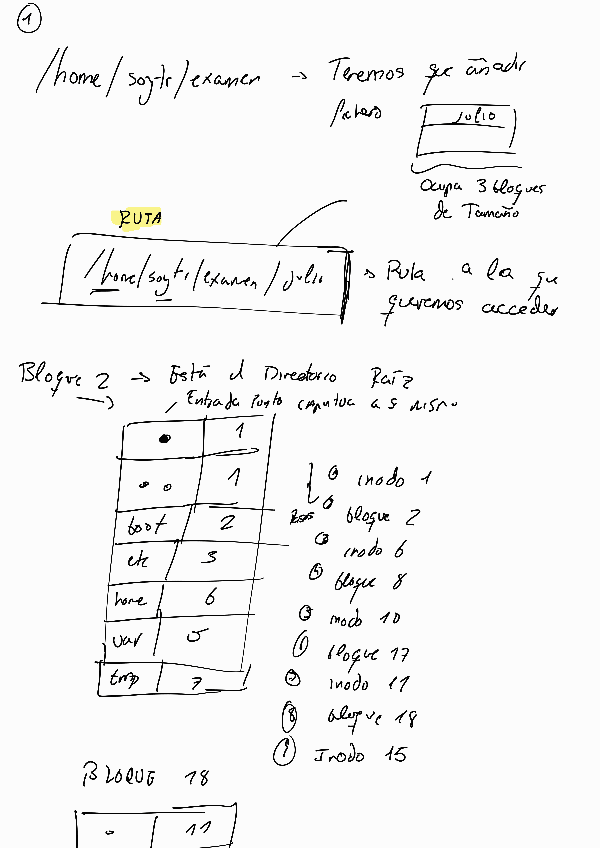 1
/home/soytr/examen → Tenemos que añadir
julio
Ocupa 3 bloques
de Tamaño
RUTA
/home/soytr/examen/julio → Ruta a la que
queremos acceder
Bloque 2 → Está el Directorio Raíz
Entrada Punto a
. 1
. . 1
boot 2
etc 3
home 6
var 5
tmp 7
inodo 1
bloque 2
inodo 6
bloque 8
inodo 10
bloque 17
inodo 11
bloque 18
Inodo 15
BLOQUE 18
. 11